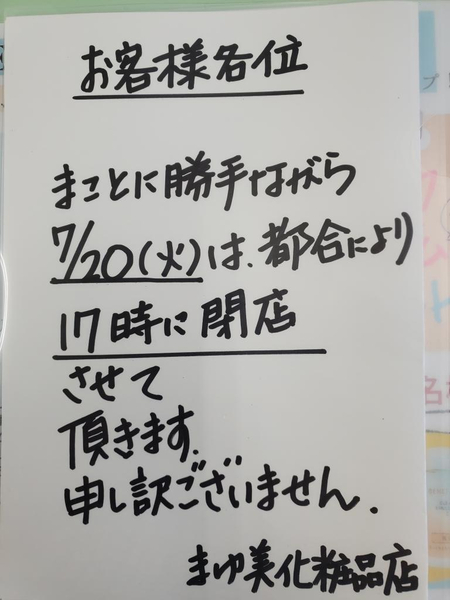 お客様各位
まことに勝手ながら
7/20(火)は、都合により
17時に閉店
させて
頂きます.
申し訳ございません.
まゆ美化粧品店